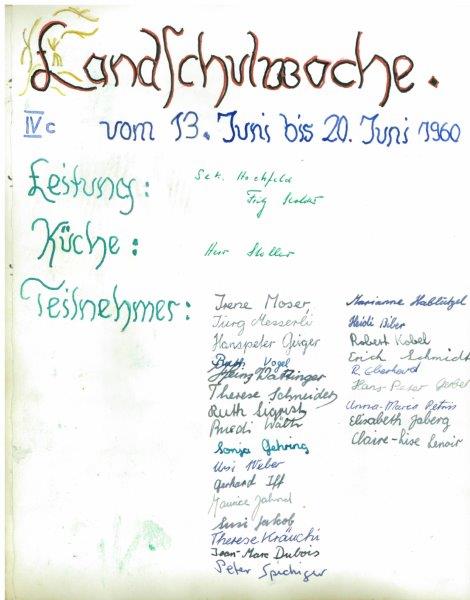 Landschulwoche.
IVc vom 13. Juni bis 20. Juni 1960
Leitung: Sek. Hochfeld
Küche: Herr
Teilnehmer:
Irene Moser
Jürg Messerli
Hanspeter Geiger
Vogel
Heinz Dattinger
Therese Schneider
Ruth Siegrist
Ruedi Wälti
Sonja Gehring
Ursi Weber
Gerhard Iff
Maurice Jahnd
Susi Jakob
Therese Kräuchi
Jean-Marc Dubois
Peter Spichiger
Marianne Hablützel
Heidi Biber
Robert Kobel
Erich Schmidt
R. Eberhard
Hans Peter
Anna-Maria
Elisabeth Jaberg
Claire-Lise Lenoir